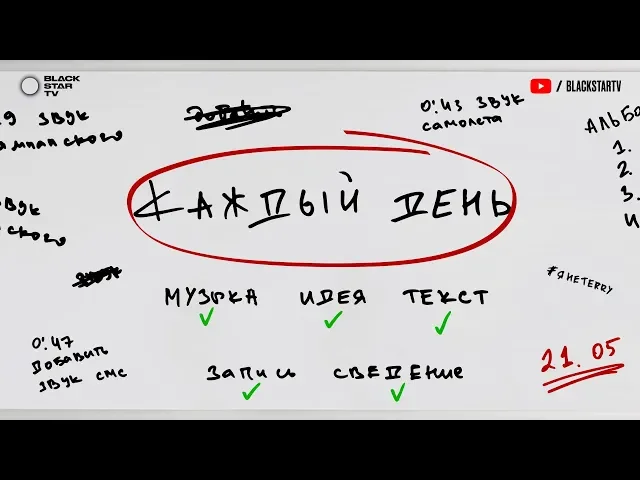 BLACK
STAR
TV
/ BLACKSTARTV
9 ЗВУК
0:43 ЗВУК
САМОЛЕТА
АЛЬБО
1.
2.
3.
КАЖДЫЙ ДЕНЬ
ЗВУК
СКОГО
#ЯНЕTERRY
МУЗЫКА ИДЕЯ ТЕКСТ
0:47
ДОБАВИТЬ
ЗВУК СМС
21.05
ЗАПИСЬ СВЕДЕНИЕ